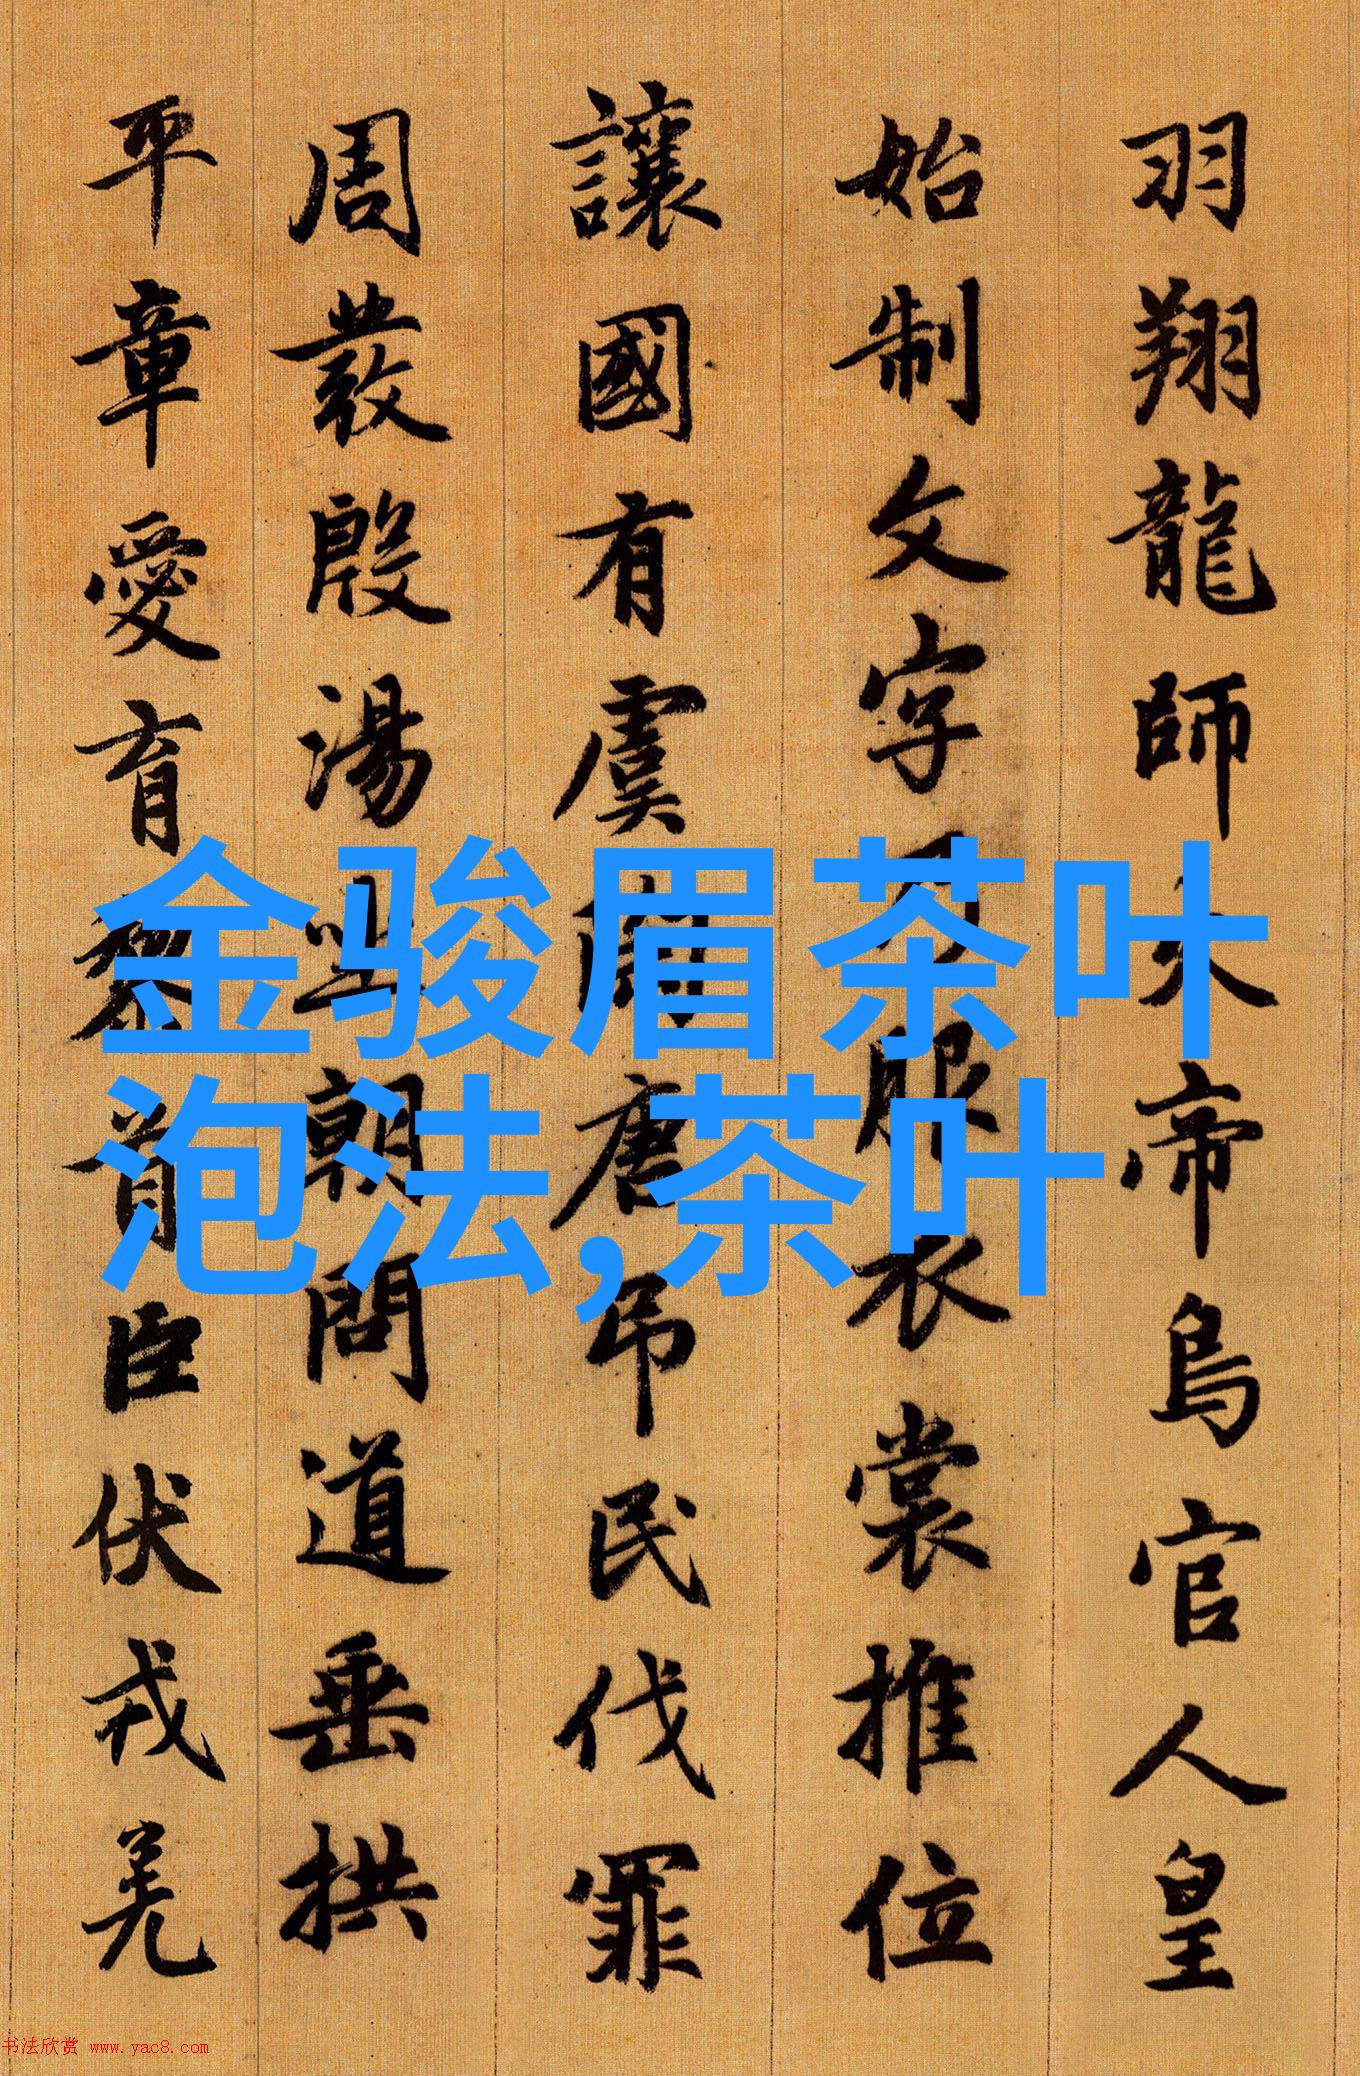 羽翔龍師火帝鳥官人皇
始制文字服衣裳推位
讓國有虞陶唐吊民伐罪
周發殷湯坐朝問道垂拱
平章愛育黎首臣伏戎羌
金骏眉茶叶
泡法,茶叶
书法欣赏 www.yac8.com